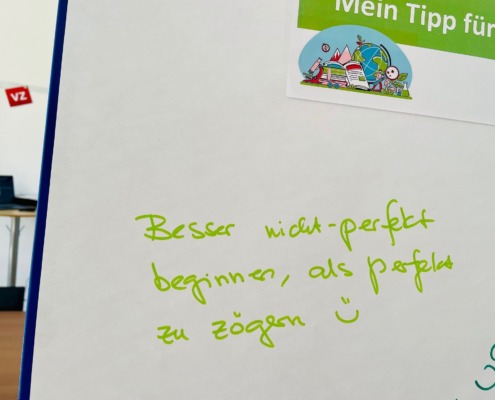 Mein Tipp für
VZ
Besser nicht-perfekt
beginnen, als perfekt
zu zögern